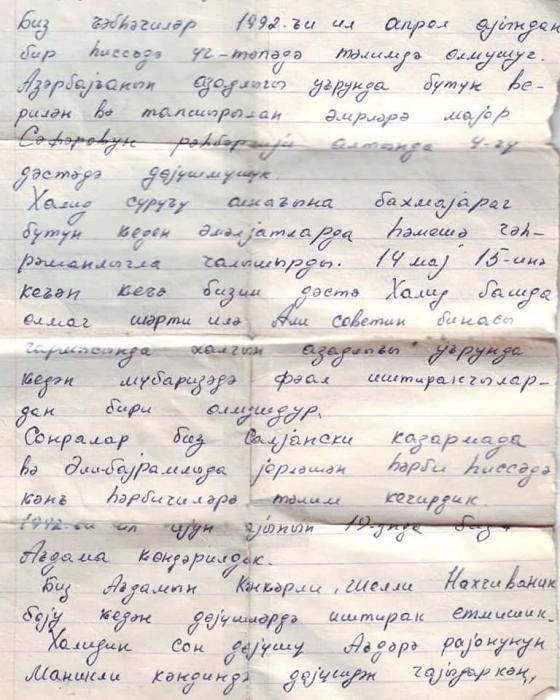 Биз ҹәбһәчиләр 1992-ҹи ил апрел ајындан
бир һиссәдә үч-тәпәдә тәлимдә олмушуг.
Азәрбајҹанын азадлығы уғрунда бүтүн ве-
рилән вә тапшырылан әмрләрә мајор
Сәфәровун рәһбәрлији алтында 4-ҹү
дәстәдә дөјүшмүшүк.
Халид сүрүҹү олмағына бахмајараг
бүтүн кедән әмәлјатларда һәмешә гәһ-
рәманлыгла чалышырды. 14 мај 15-инә
кечән кеҹә бизим дәстә Халид башда
олмаг шәрти илә Али советин бинасы
гаршысында халгын азадлығы уғрунда
кедән мүбаризәдә фәал иштиракчылар-
дан бири олмушдур.
Сонралар биз Салјански казармада
вә Әли-Бајрамлыда јерләшән һәрби һиссәдә
кәнҹ һәрбичиләрә тәлим кечирдик.
1992-ҹи ил ијун ајынын 19-унда биз
Ағдама көндәрилдик.
Биз Ағдамын Кәнкәрли, Нахчываник
боју кедән дөјүшләрдә иштирак етмишик.
Халидин сон дөјүшү Ағдәрә рајонунун
Маниклы кәндиндә дөјүшдән гајыдаркән,